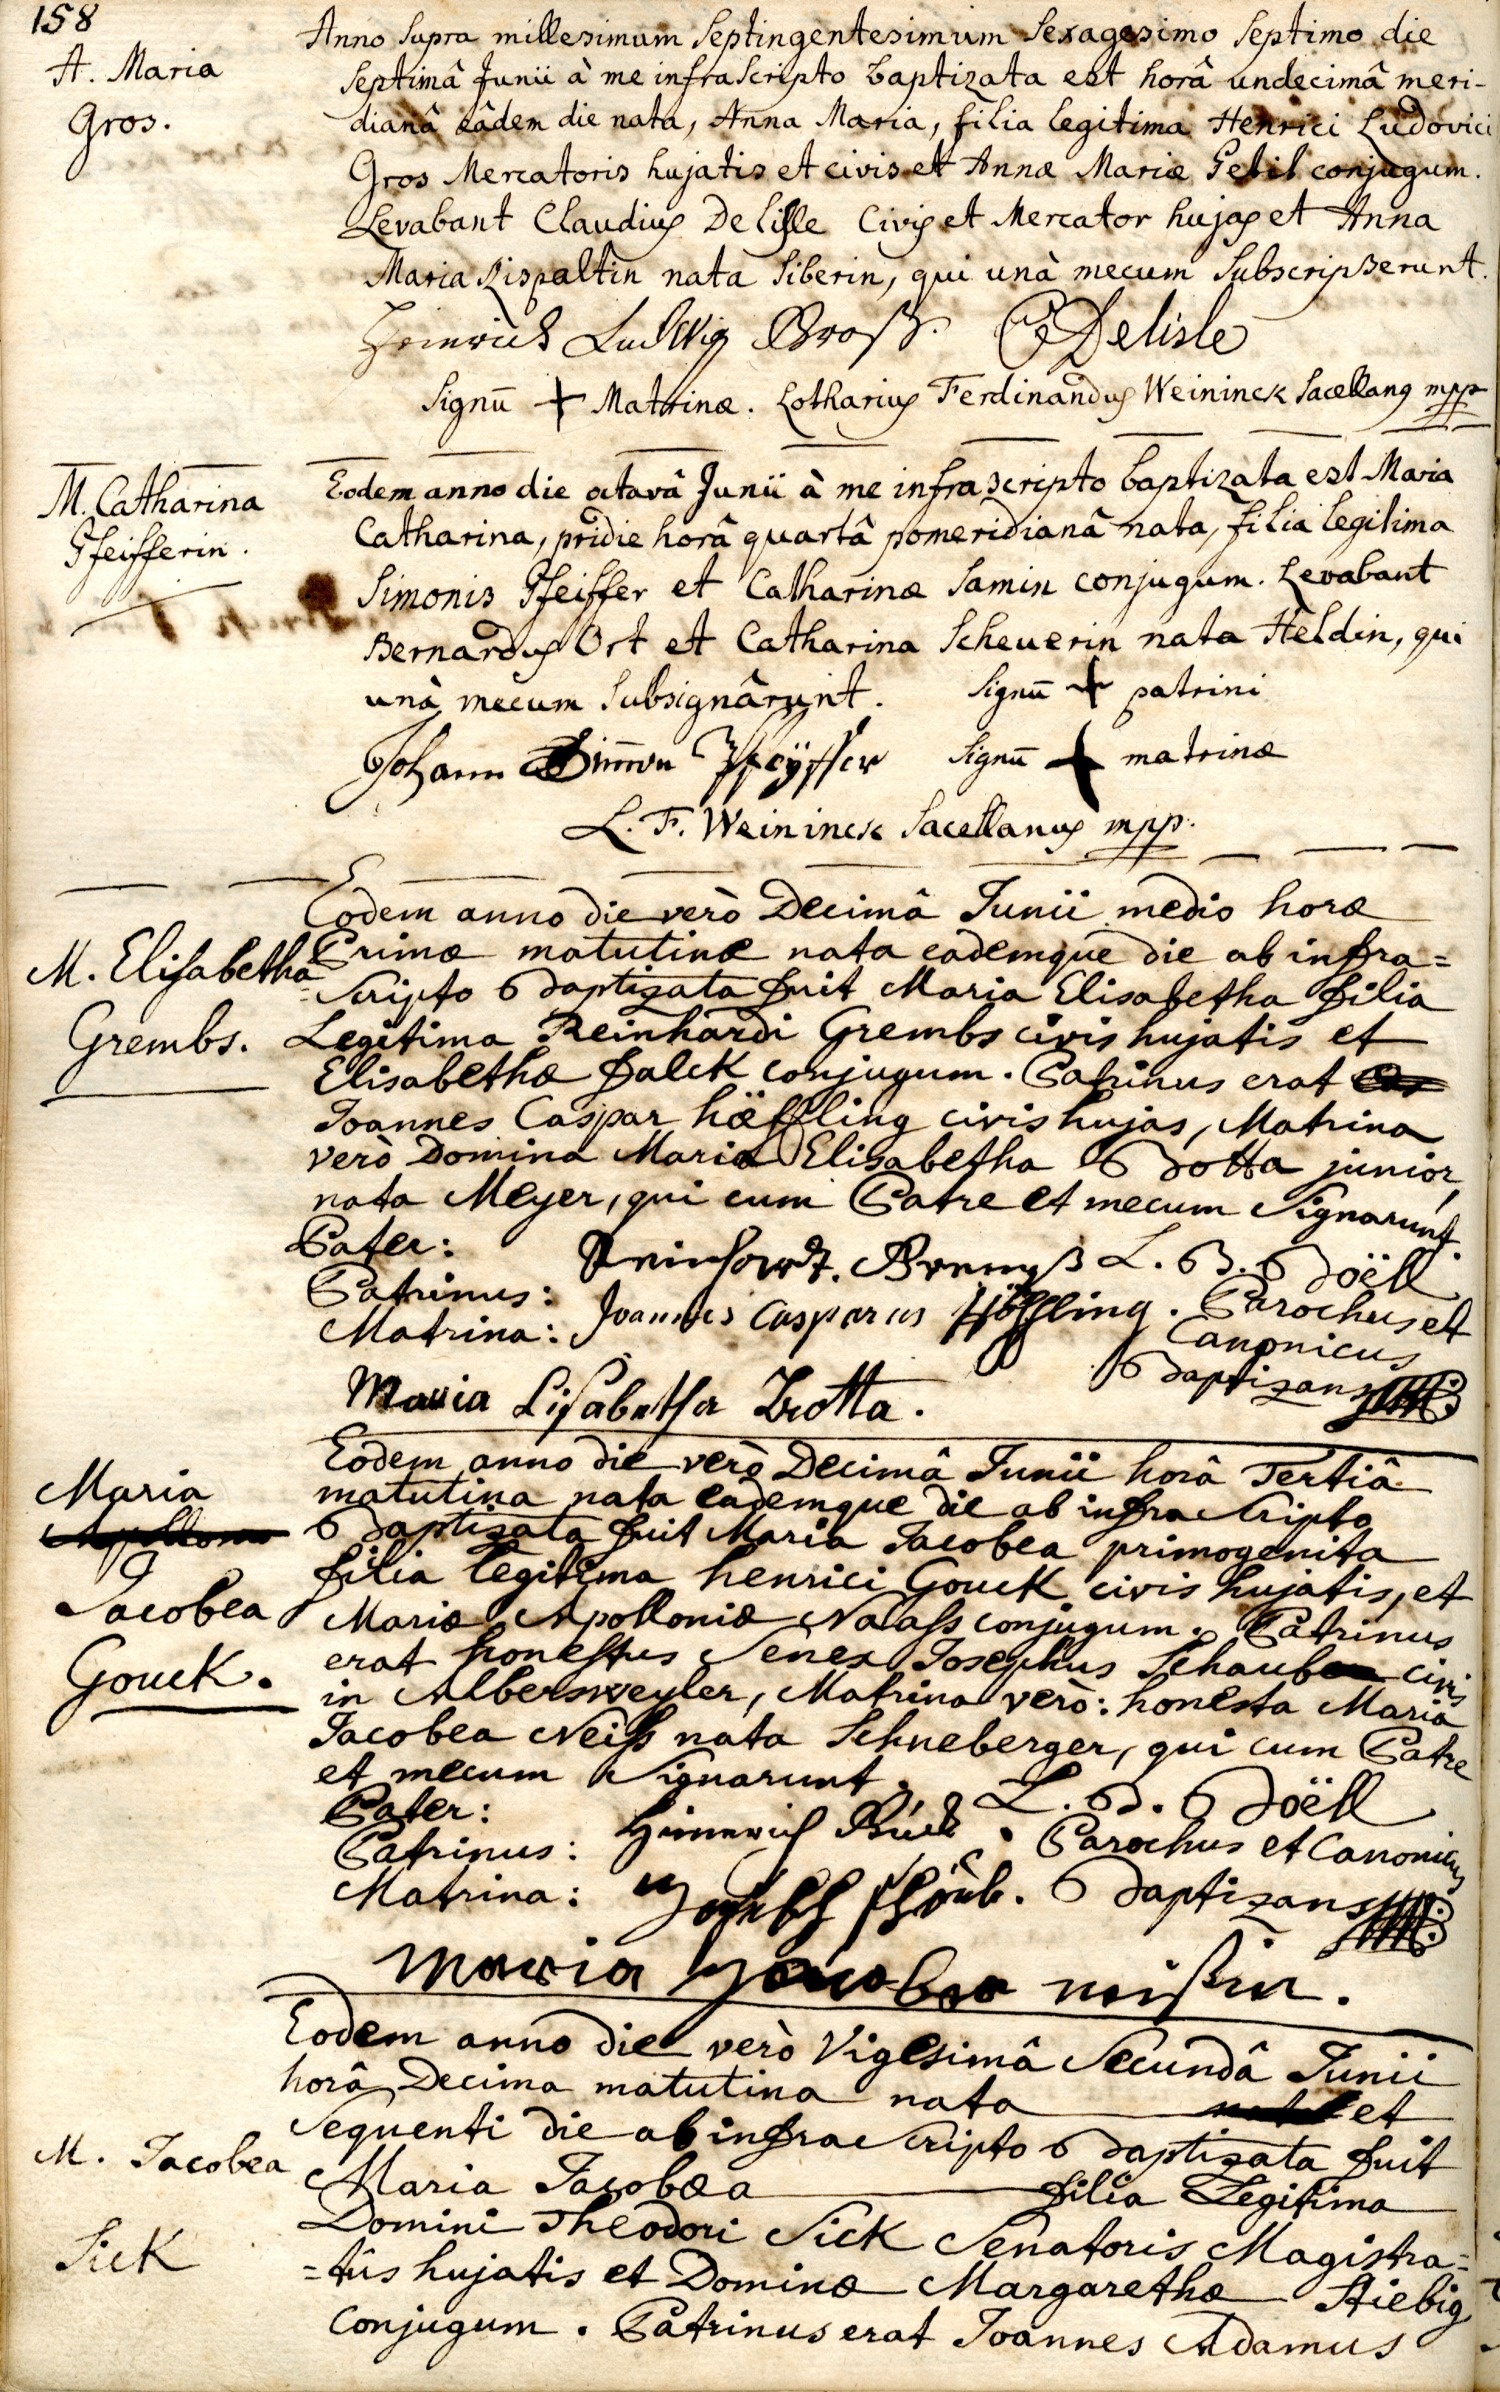 158
A. Maria
Gros.
Anno supra millesimum Septingentesimum Sexagesimo Septimo die
septimâ Junii à me infraScripto baptizata est horâ undecimâ meri-
dianâ eâdem die nata, Anna Maria, filia legitima Henrici Ludovici
Gros Mercatoris hujatis et civis et Annæ Mariæ Petit conjugum.
Levabant Claudius De lisle Civis et Mercator hujas et Anna
Maria Rispaltin nata Siberin, qui unà mecum Subscripserunt.
Heinrich Ludwig Groß. C Delisle
Signū + Matrinæ. Lotharius Ferdinandus Weininck Sacellanus mpp
M. Catharina
Pfeifferin.
Eodem anno die octavâ Junii à me infrascripto baptizata est Maria
Catharina, pridie horâ quartâ pomeridianâ nata, filia legitima
Simonis Pfeiffer et Catharinæ Samin conjugum. Levabant
Bernardus Ort et Catharina Scheuerin nata Heldin, qui
unà mecum Subsignârunt. Signū + patrini
Johann Simon Pfeÿffer Signū + matrinæ
L. F. Weininck Sacellanus mpp.
M. Elisabetha
Grembs.
Eodem anno die verò Decimâ Junii medio horæ
Primæ matutinæ nata eademque die ab infra=
=Scripto Baptizata fuit Maria Elisabetha filia
Legitima Reinhardi Grembs civis hujatis et
Elisabethæ Falck conjugum. Patrinus erat
Joannes Caspar höffling civis hujas, Matrina
verò Domina Maria Elisabetha Brotta junior,
nata Meyer, qui cum Patre et mecum Signarunt.
Pater: Reinhardt. Bremß L. B. Böell
Patrinus: Joannes Casparus Höffling. Parochus et
Matrina: Canonicus
Baptizans
Maria Lisabetha Brotta.
Maria
Jacobea
Gouck.
Eodem anno die verò Decimâ Junii horâ Tertiâ
matutina nata eademque die ab infraScripto
Baptizata fuit Maria Jacobea primogenita
filia legitima henrici Gouck civis hujatis, et
Mariæ Apolloniæ Naass conjugum. Patrinus
erat honestus Senex Josephus Schaub civis
in Albersweyler, Matrina verò: honesta Maria
Jacobea Neiß nata Schneberger, qui cum Patre
et mecum Signarunt.
Pater: L. B. Böell
Patrinus: Heinrich Gück. Parochus et Canonicus
Matrina: Joseph Schaub. Baptizans
Maria Jacobea neißin.
M. Jacobea
Sick
Eodem anno die verò Vigesimâ Secundâ Junii
horâ Decima matutina nata et
Sequenti die ab infraScripto Baptizata fuit
Maria Jacobæa filia Legitima
Domini Theodori Sick Senatoris Magistra=
=tûs hujatis et Dominæ Margarethæ Hiebig
Conjugum. Patrinus erat Joannes Adamus